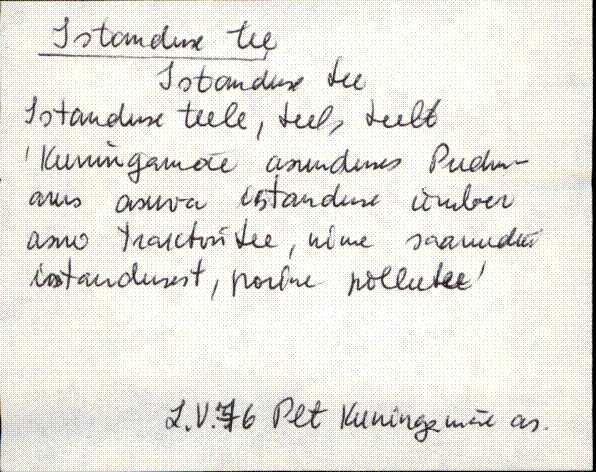 Istanduse tee
Istanduse tee
Istanduse teele, teel, teelt
'Kuningamäe asunduses Pudru-
aus asuva istanduse ümber
asuv traktoritee, nime saanud
istandusest, porine põllutee'
L.V. 76 Plt Kuningamäe as.